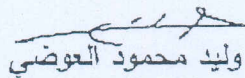 وليد محمود العوضي